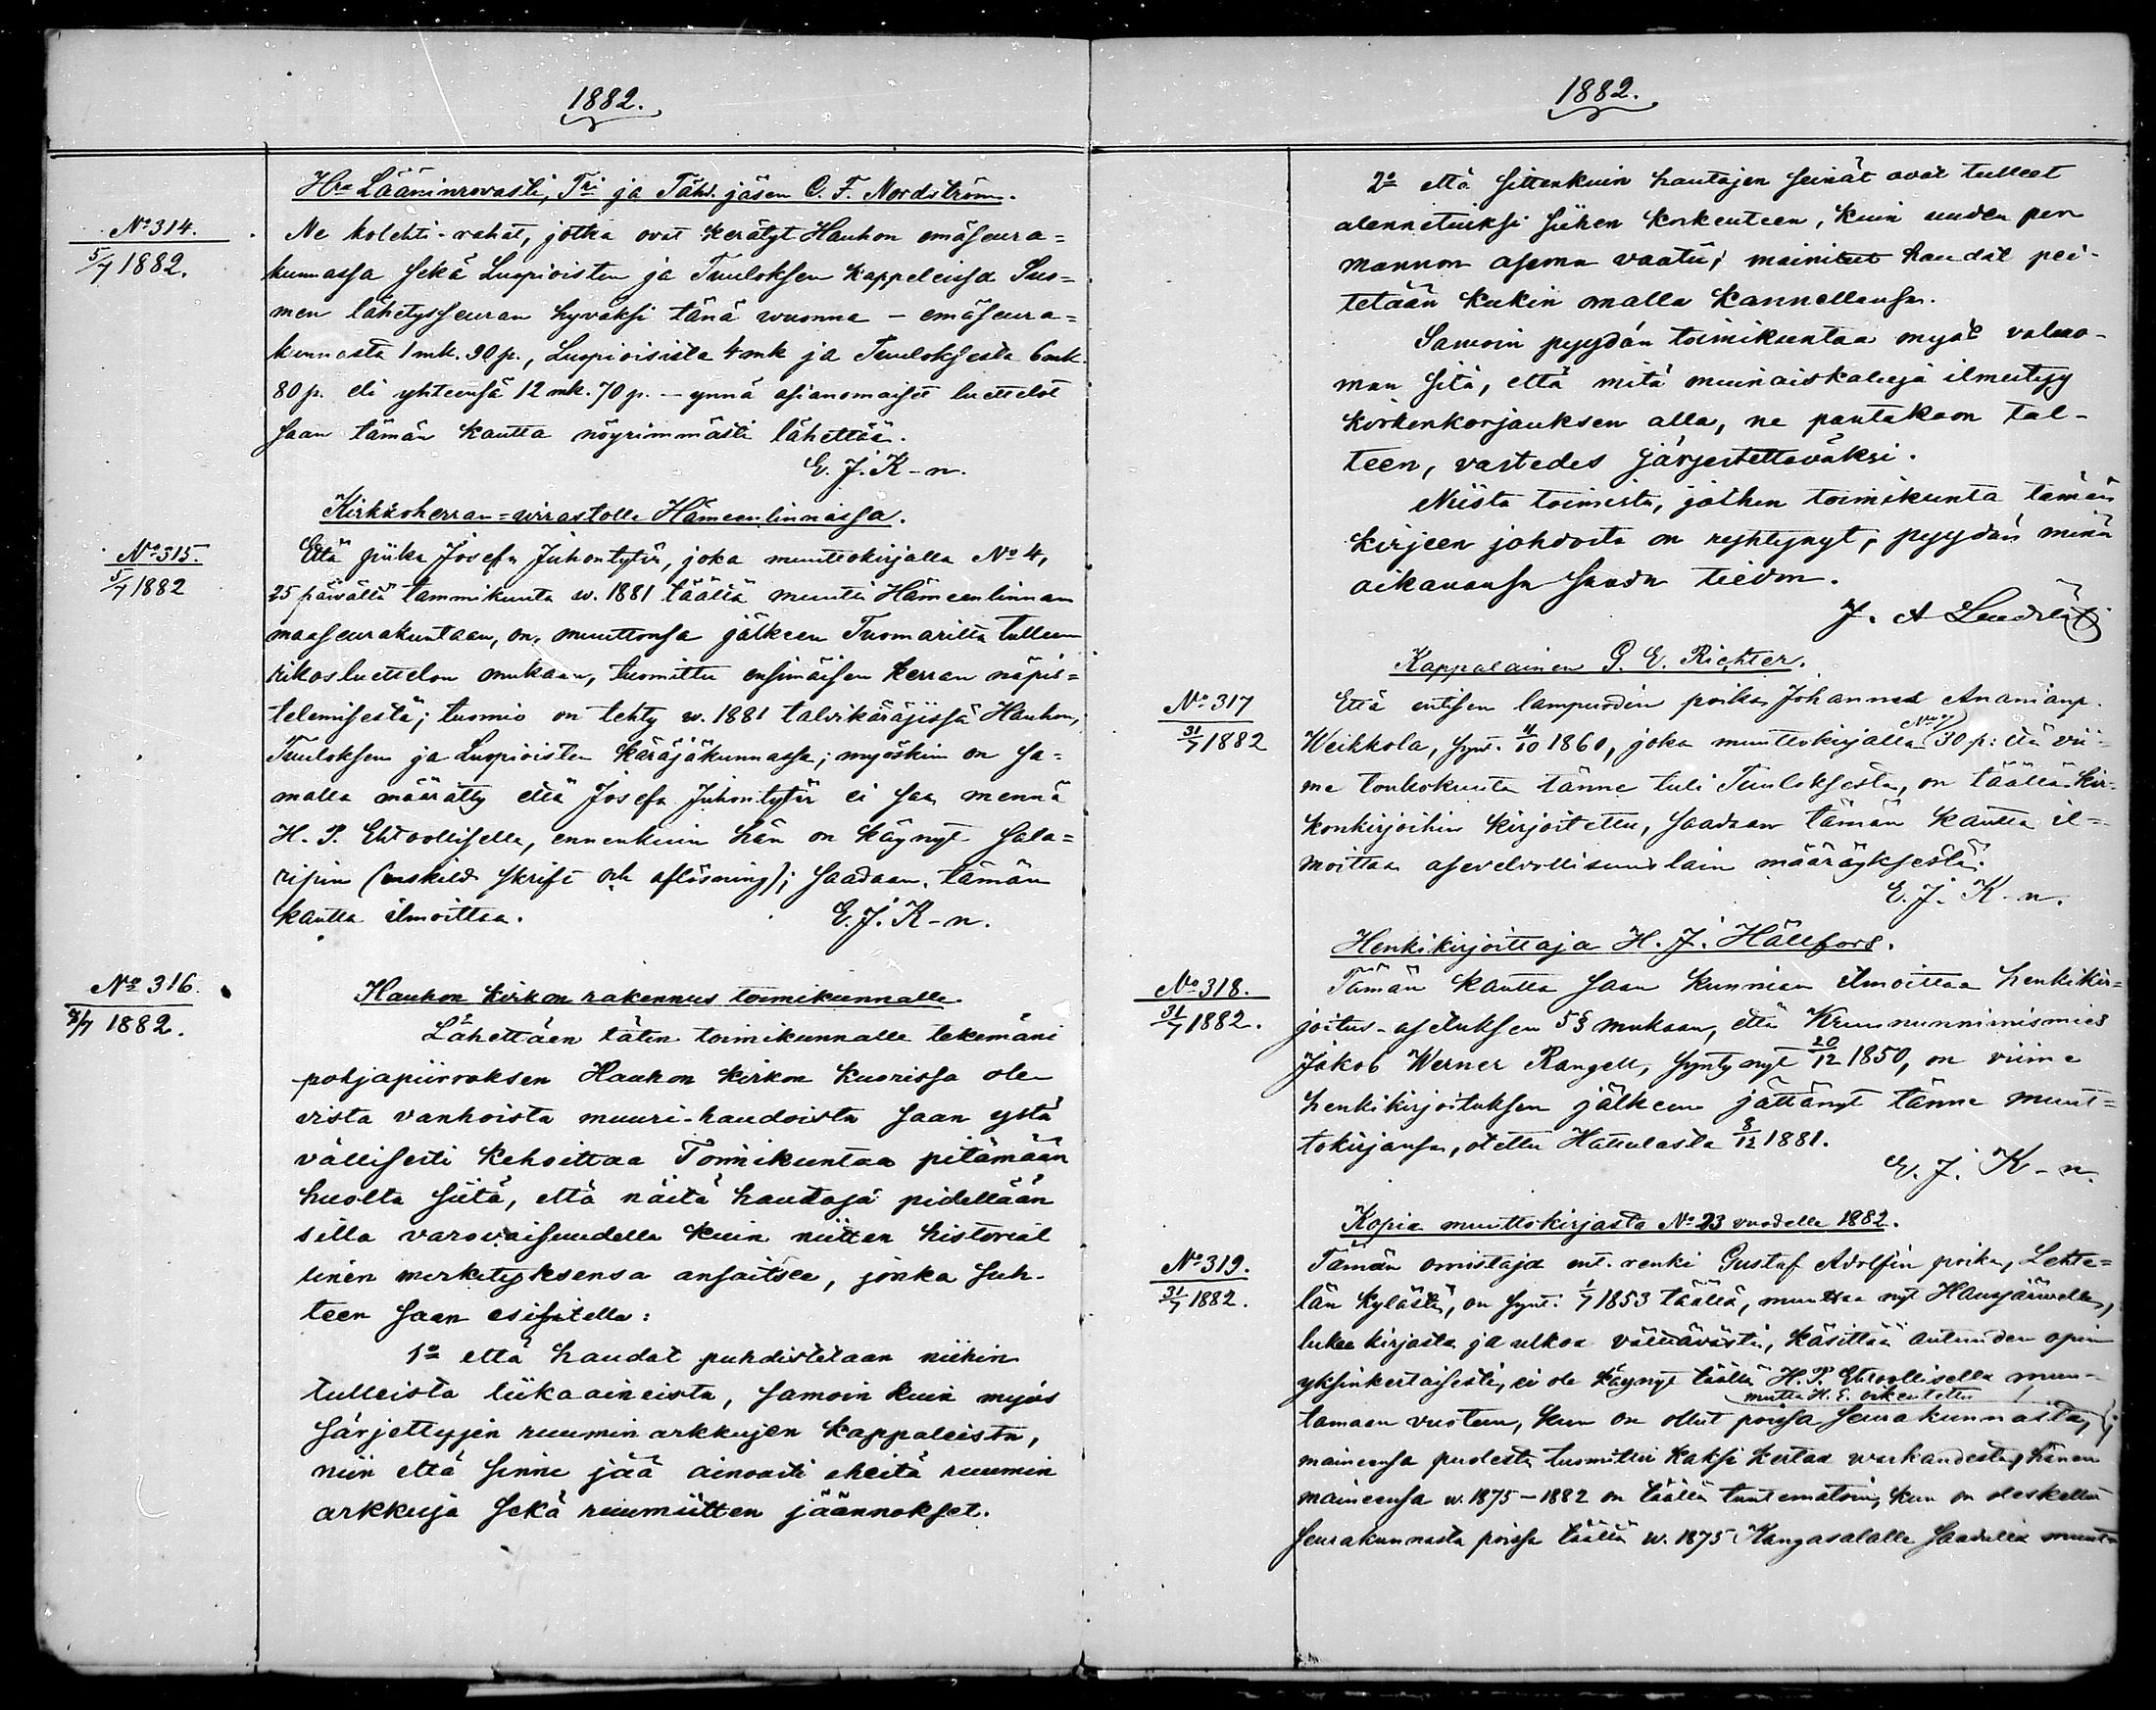 1882.
Hra Lääninrovasti, Tri ja Tähd. jäsen C. F. Nordström.
No 314.
5/7 1882.
Ne kolehti-rahat, jotka ovat kerätyt Hauhon emäseura=
kunnassa sekä Luopioisten ja Tuuloksen kappeleissa Suo=
men lähetysseuran hyväksi tänä wuonna – emäseura=
kunnasta 1 mk. 90 p., Luopioisista 4 mk ja Tuuloksesta 6 mk.
80 p. eli yhteensä 12 mk. 70 p. – ynnä asianomaiset luettelot
saan tämän kautta nöyrimmästi lähettää.
E. J. K-n.
Kirkkoherran=wirastolle Hämeenlinnassa.
No 315.
5/7 1882
Että piika Josefa Juhontytär, joka muuttokirjalla No 4,
25 päiwältä tammikuuta w. 1881 täältä muutti Hämeenlinnan
maaseurakuntaan, on, muuttonsa jälkeen Tuomarilta tulleen
rikosluettelon mukaan, tuomittu ensimäisen kerran näpis=
telemisestä; tuomio on tehty w. 1881 talvikäräjissä Hauhon,
Tuuloksen ja Luopioisten käräjäkunnassa; myöskin on sa=
malla määrätty että Josefa Juhontytär ei saa mennä
H. P. Ehtoolliselle, ennenkuin hän on käynyt sala=
ripin (enskild skrift och aflösning); saadaan tämän
kautta ilmoittaa. E. J. K-n.
No 316.
7/7 1882.
Hauhon kirkon rakennus toimikunnalle.
Lähettäen täten toimikunnalle tekemäni
pohjapiirroksen Hauhon kirkon kuorissa ole-
vista vanhoista muuri-haudoista saan ystä
vällisesti kehoittaa Toimikuntaa pitämään
huolta siitä, että näitä hautoja pidellään
sillä varovaisuudella kuin niitten historial
linen merkityksensä ansaitsee, jonka suh-
teen saan esitellä:
1o että haudat puhdistetaan niihin
tulleista liika aineista, samoin kuin myös
särjettyjen ruumin arkkujen kappaleista,
niin että sinne jää ainoasti eheitä ruumin
arkkuja sekä ruumiitten jäännökset.
1882.
2o että sittenkuin hautojen seinät ovat tulleet
alennetuiksi siihen korkeuteen, kuin uuden per
mannon asema vaatii; mainitut haudat pei-
tetään kukin omalla kannellansa.
Samoin pyydän toimikuntaa myöt valvo-
man sitä, että mitä muinaiskaluja ilmestyy
kirkonkorjauksen alla, ne pantakoon tal-
teen, vastedes järjestettäväksi.
Niistä toimista, joihin toimikunta tämän
kirjeen johdosta on ryhtynyt, pyydän minä
aikanansa saada tiedon.
J. A
Kappalainen G. E. Richter.
No 317
31/7 1882
Että entisen lampuodin poika Johannes Ananianp.
Weikkola, synt. 11/10 1860, joka muuttokirjalla 30 p: ltä vii=
me toukokuuta tänne tuli Tuuloksesta, on täällä kir=
konkirjoihin kirjoitettu, saadaan tämän kautta il=
moittaa asevelvollisuus lain määräyksestä.
E. J. K-n.
Henkikirjoittaja H. J. Hällfors.
No 318.
31/7 1882.
Tämän kautta saan kunnian ilmoittaa henkikir=
joitus-asetuksen 5 § mukaan, että Kruununnimismies
Jakob Werner Rangell, syntynyt 20/12 1850, on viime
henkikirjoituksen jälkeen jättänyt tänne muut=
tokirjansa, otettu Hattulasta 8/12 1881.
E. J. K-n.
Kopia muuttokirjasta No 23 vuodelle 1882.
No 319.
31/7 1882.
Tämän omistaja ent. renki Gustaf Adolfin poika, Lehte=
län kylästä, on synt. 1/7 1853 täällä, muuttaa nyt Hausjärwelle,
lukee kirjasta ja ulkoa välttävästi, käsittää autuuden opin
yksinkertaisesti, ei ole käynyt täällä H. P. Ehtoollisella muu-
mutta H. E. oikeutettu
tamaan vuoteen, kun on ollut poissa seurakunnasta,
maineensa puolesta tuomittu kaksi kertaa warkaudesta, hänen
maineensa w. 1875–1882 on täällä tuntematoin, kun on oleskellut
seurakunnasta poissa täältä w. 1875 Kangasalalle saadulla muut=